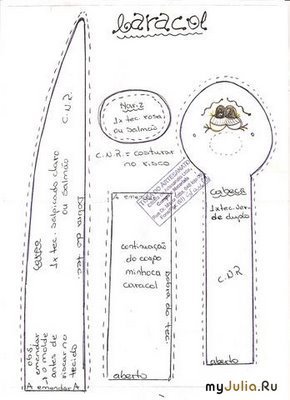 Caracol
Nariz
1x tec. rosa
ou salmão
C.N.R. = costurar
no risco
Corpo
1x tec. salpicado claro
ou salmão
C.N.R
Dobra do tec.
obs:
emendar
o molde
antes de
riscar no
tecido
A emendar A
A emendar A
continuação
do corpo
minhoca
caracol
dobra do tec.
aberto
cabeça
1x tec. ver.
de duplo
C.N.R
aberto
myJulia.Ru